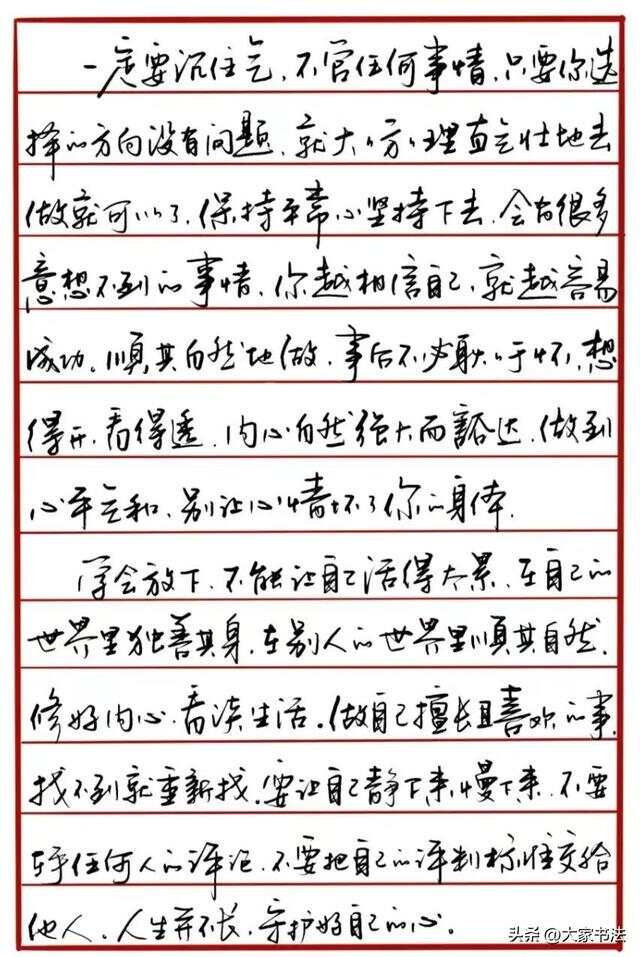 一定要沉住气，不管任何事情，只要你选
择的方向没有问题，就大大方方理直气壮地去
做就可以了，保持平常心坚持下去，会有很多
意想不到的事情，你越相信自己，就越容易
成功。順其自然地做，事后不必耿耿于怀，想
得开，看得透，内心自然强大而豁达，做到
心平气和，别让心情坏了你的身体．
学会放下，不能让自己活得太累，在自己的
世界里独善其身，在别人的世界里順其自然．
修好内心，看淡生活。做自己擅长且喜欢的事，
找不到就重新找。要让自己静下来，慢下来，不要
在乎任何人的评论，不要把自己的评判标准交给
他人，人生并不长，守护好自己的心。
头条 @大家书法